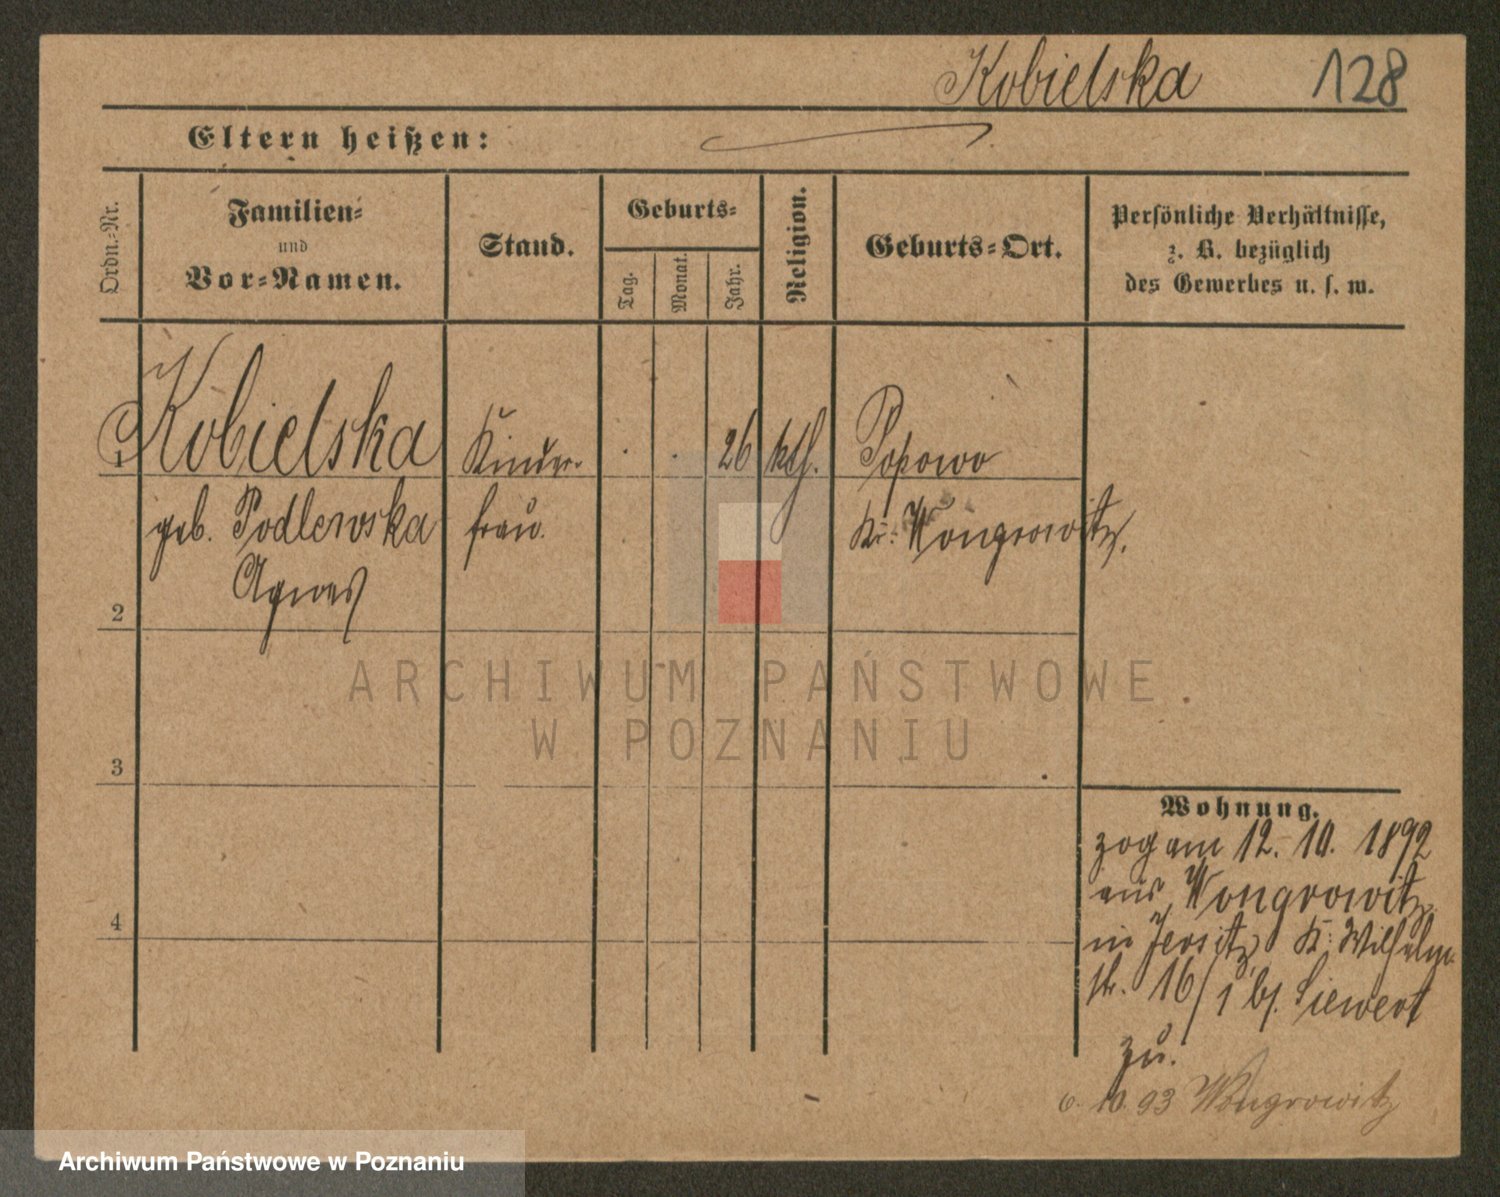 Kobielska 128
Eltern heißen:
Ordn.-Nr.
Familien-
und
Vor-Namen.
Stand.
Geburts-
Tag.
Monat.
Jahr.
Religion.
Geburts-Ort.
Persönliche Verhältnisse,
z. B. bezüglich
des Gewerbes u. s. w.
1 Kobielska Kinder- . . 26 kth. Popowo
geb. Podlewska frau. Kr. Wongrowitz.
Agnes
2
3
4
Wohnung.
zog am 12. 10. 1892
aus Wongrowitz
in Jersitz K. Wilhelm
str. 16/1 bj. Siewert
zu.
6. 10. 93 Wongrowitz
ARCHIWUM PAŃSTWOWE
W POZNANIU
Archiwum Państwowe w Poznaniu